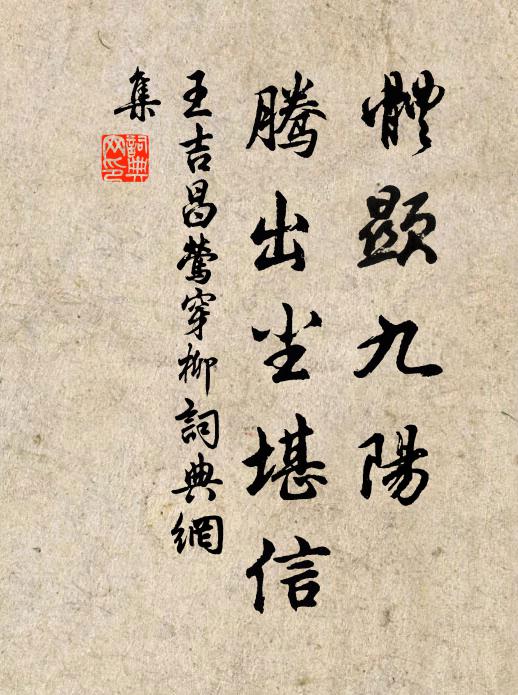 體顯九陽
騰出尘堪信
王吉昌鶯穿柳詞典網
集
詞典網印